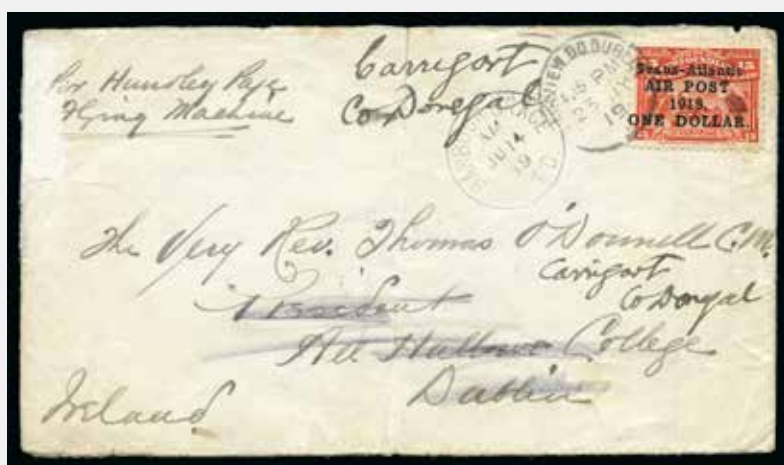 Per Handley Page
Flying Machine
Carrigart
Co Donegal
Trans-Atlantic
AIR POST
1919.
ONE DOLLAR.
15
VIEW.D.O.DUB
PM
19
GRACE
AM
JU 14
19
The Very Rev. Thomas O'Donnell C.M.
Carrigart
Co Donegal
President
All Hallows College
Dublin
Ireland